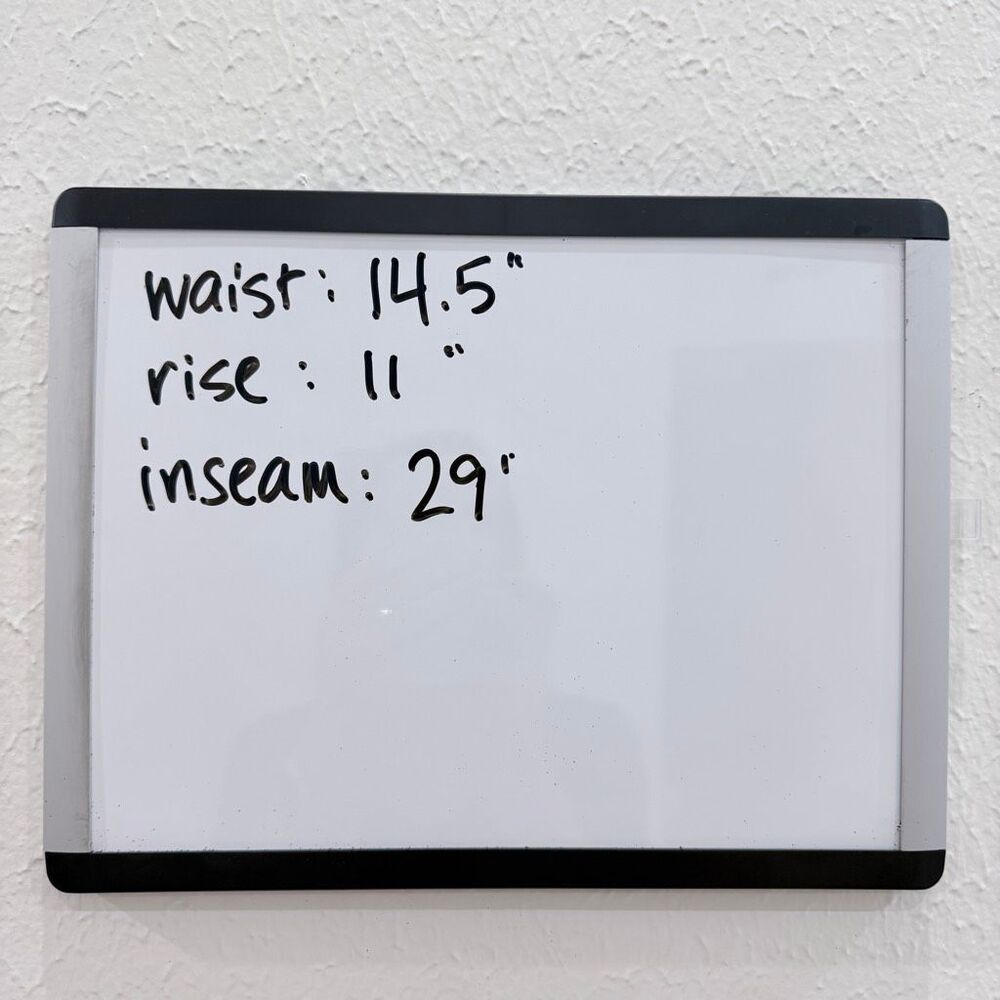 waist: 14.5"
rise : 11 "
inseam: 29"